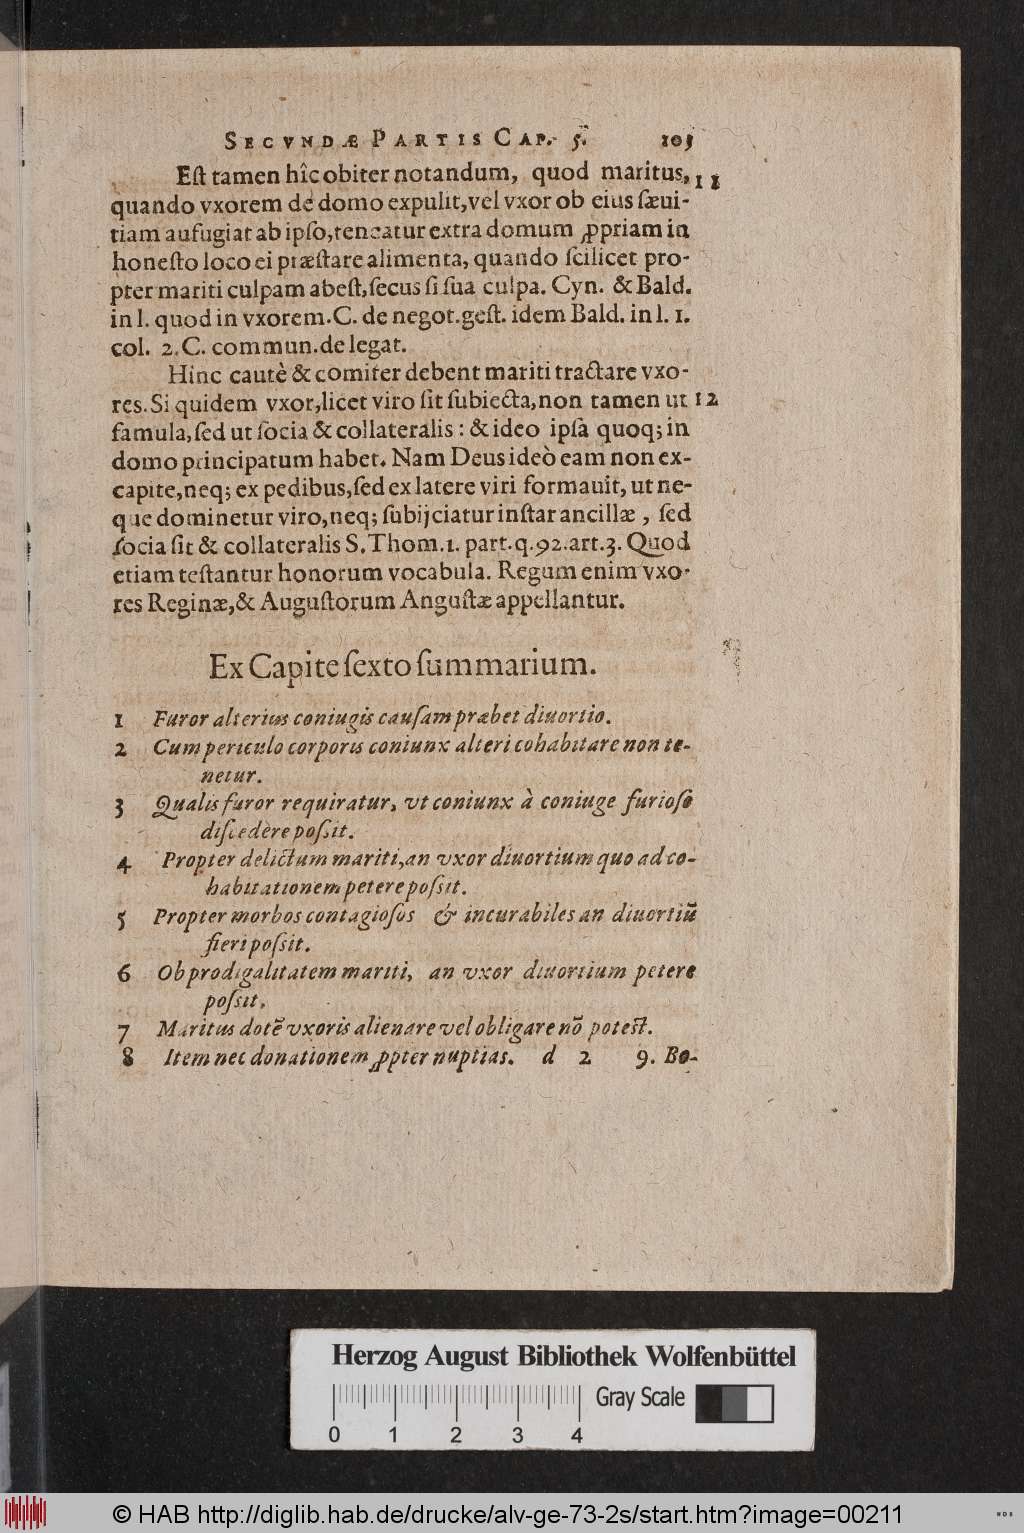 SECVNDÆ PARTIS CAP. 5. 105
Eſt tamen hîc obiter notandum, quod maritus, 11
quando vxorem de domo expulit, vel vxor ob eius ſæui-
tiam aufugiat ab ipſo, teneatur extra domum ꝓpriam in
honeſto loco ei præſtare alimenta, quando ſcilicet pro-
pter mariti culpam abeſt, ſecus ſi ſua culpa. Cyn. & Bald.
in l. quod in vxorem. C. de negot. geſt. idem Bald. in l. 1.
col. 2. C. commun. de legat.
Hinc cautè & comiter debent mariti tractare vxo-
res. Si quidem vxor, licet viro ſit ſubiecta, non tamen ut 12
famula, ſed ut ſocia & collateralis: & ideo ipſa quoq; in
domo principatum habet. Nam Deus ideò eam non ex
capite, neq; ex pedibus, ſed ex latere viri formauit, ut ne-
que dominetur viro, neq; ſubijciatur inſtar ancillæ, ſed
ſocia ſit & collateralis S. Thom. 1. part. q. 92. art. 3. Quod
etiam teſtantur honorum vocabula. Regum enim vxo-
res Reginæ, & Auguſtorum Anguſtæ appellantur.
Ex Capite ſexto ſummarium.
1 Furor alterius coniugis cauſam præbet diuortio.
2 Cum periculo corporis coniunx alteri cohabitare non te-
netur.
3 Qualis furor requiratur, vt coniunx à coniuge furioſo
diſcedere poſsit.
4 Propter delictum mariti, an vxor diuortium quo ad co-
habitationem petere poſsit.
5 Propter morbos contagioſos & incurabiles an diuortiũ
fieri poſsit.
6 Ob prodigalitatem mariti, an vxor diuortium petere
poſsit.
7 Maritus dotẽ vxoris alienare vel obligare nõ poteſt.
8 Item nec donationem ꝓpter nuptias. d 2 9. Bo-
Herzog August Bibliothek Wolfenbüttel
Gray Scale
0 1 2 3 4
© HAB http://diglib.hab.de/drucke/alv-ge-73-2s/start.htm?image=00211